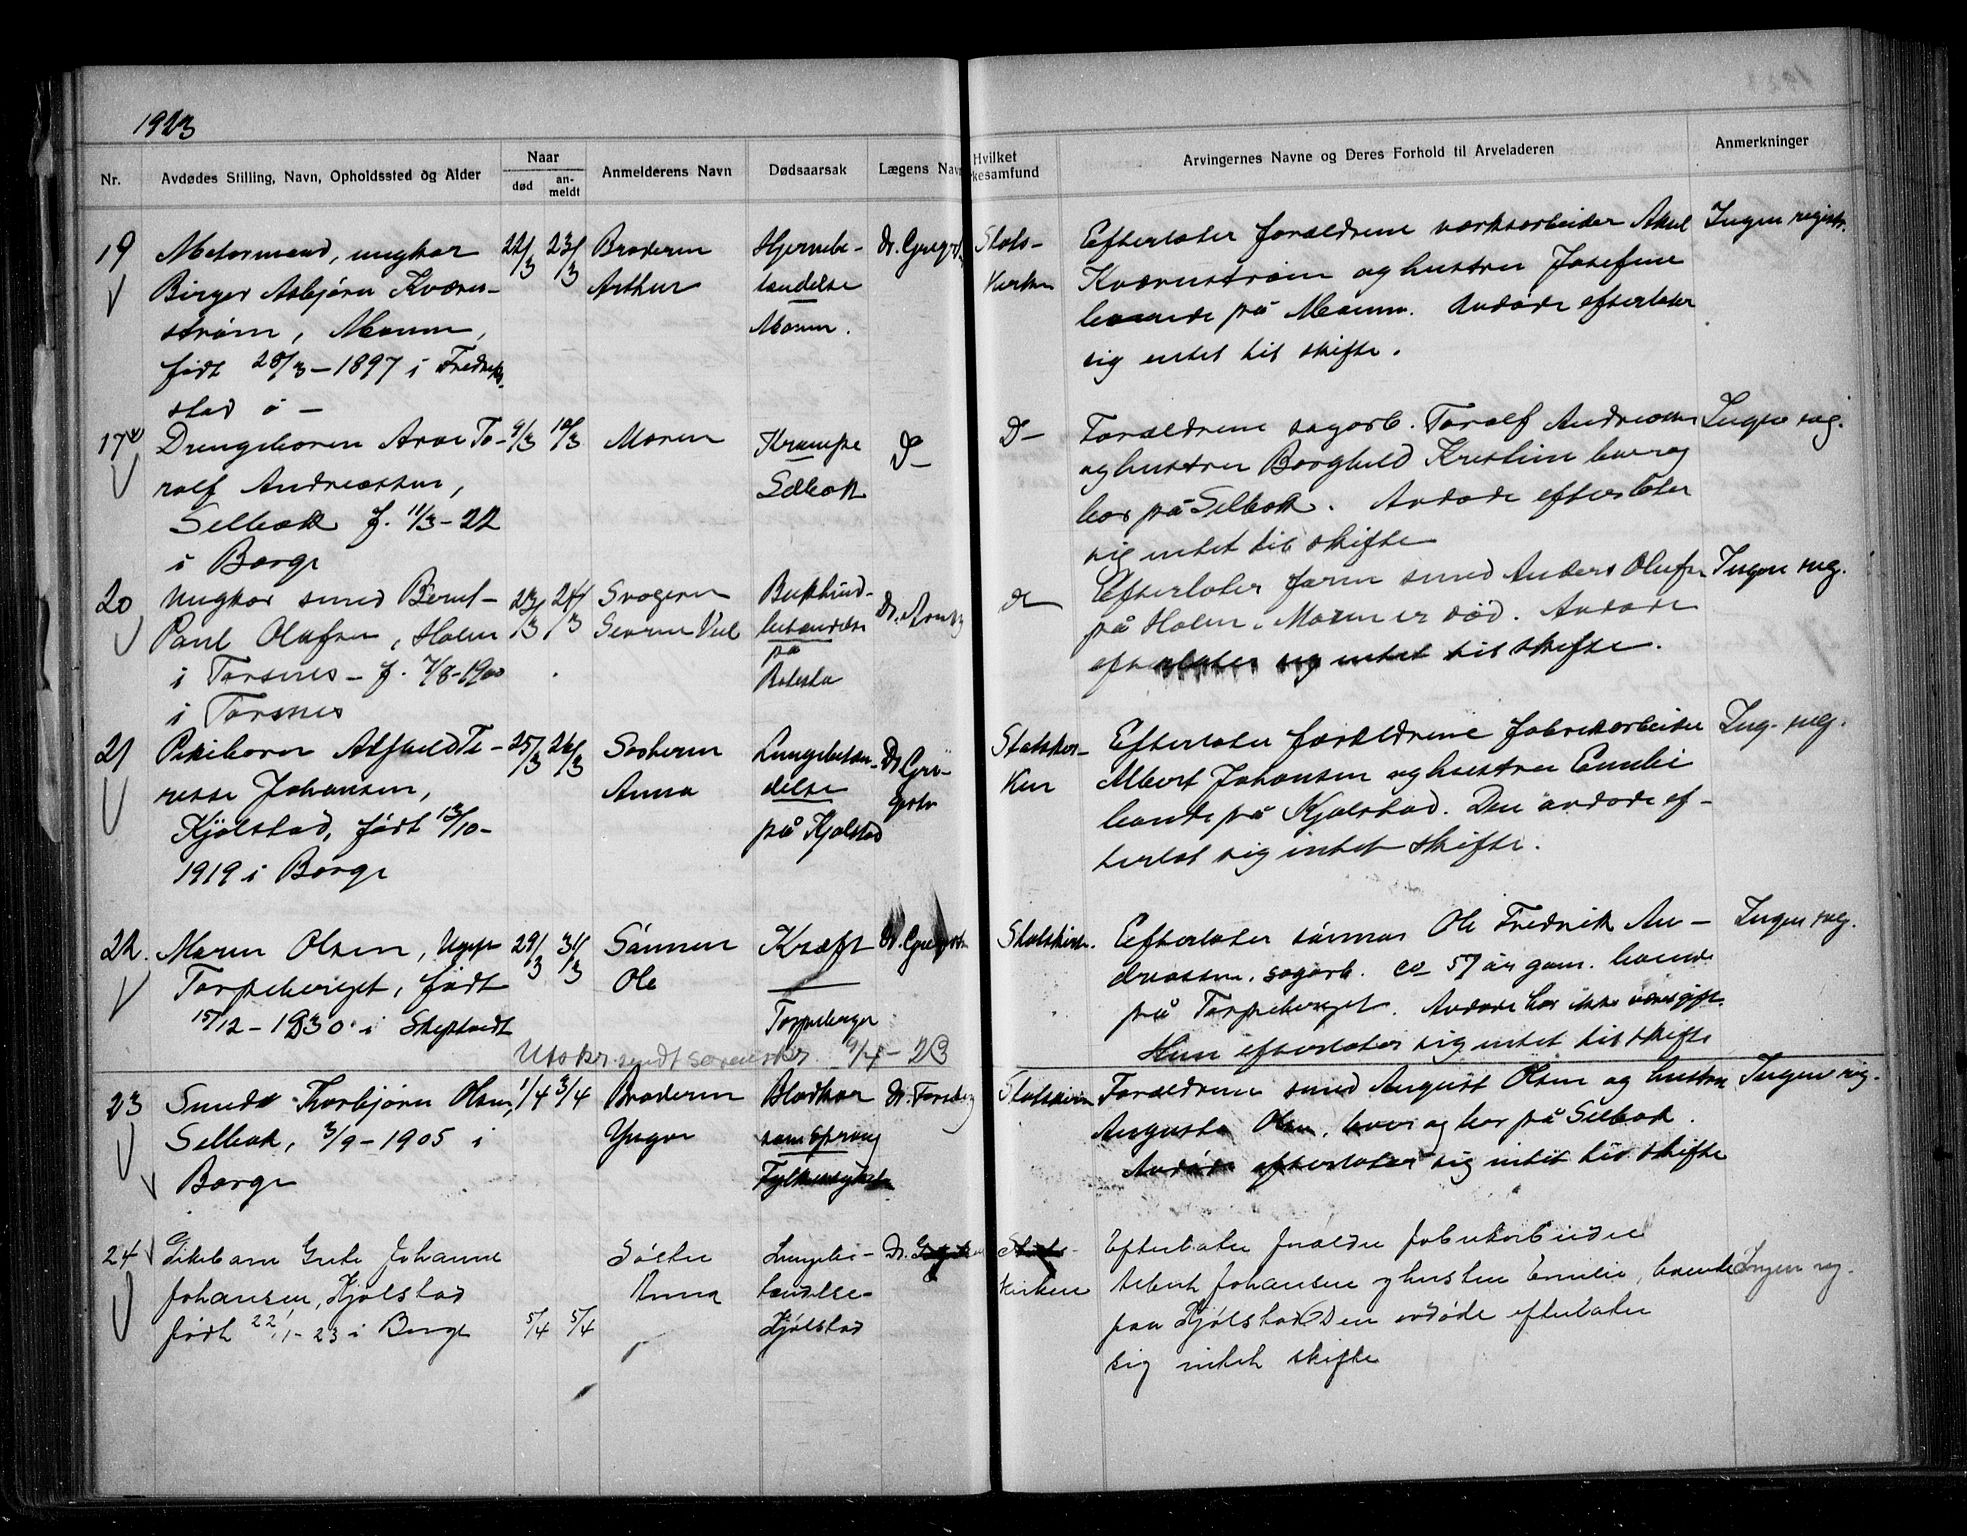 1923
Nr.
Avdødes Stilling, Navn, Opholdssted og Alder
Naar
død
an-
meldt
Anmelderens Navn
Dødsaarsak
Lægens Navn
Hvilket
kesamfund
Arvingernes Navne og Deres Forhold til Arveladeren
Anmerkninger
19
Motormand, ungkar
Birger Asbjørn Kværn-
strøm, Moum,
født 28/3 – 1897 i Fredrik-
stad
22/3
23/3
Broderen
Arthur
Hjernebe-
tændelse
Moum.
Dr.
Stats-
kirken
Efterlater forældrene værksarbeider Aksel
Kvernstrøm og hustru Josefine
boende på Moum. Avdøde efterlater
sig intet til skifte.
Ingen registr.
17
Drengebarn Arne To-
ralf Andreassen,
Selbak f. 11/3 – 22
i Borge
9/3
10/3
Moren
Krampe
Selbak
D–
D–
Forældrene sagarb. Toralf Andreassen
og hustru Borghild Kristine
bor på Selbak. Avdøde efterlater
sig intet til skifte
Ingen reg.
20
Ungkar smed Bernt
Paul Olafsen, Holm
i Torsnes – f. 7/8-1900
i Torsnes
23/3
24/3
Svogeren
Bukhind-
betændelse
på
Dr.
Efterlater faren smed Anders Olufsen
på Holm. Moren er død. Avdøde
efterlater sig intet til skifte.
Ingen reg.
21
Pikebarn Alfhild Te-
resse Johansen,
Kjølstad, født 13/10-
1919 i Borge
25/3
26/3
Søsteren
Anna
Lungebetæn-
delse
på Kjølstad
Dr.
Statskir-
ken
Efterlater forældrene fabrikarbeider
Albert Johansen og hustru Emilie
boende på Kjølstad. Den avdøde ef-
terlot sig intet skifte.
Ing. reg.
22.
Maren Olsen, Ugift
Torpeberget, født
15/12 – 1830 i Skjeptvedt
29/3
31/3
Sønnen
Ole
Kræft
Torpeberget
Dr.
Statskirk.
Efterlater sønnen Ole Fredrik An-
dreassen, sagarb. ca 57 år gam. boende
på Torpeberget. Avdøde har ikke været gift.
Hun efterlater sig intet til skifte
Ingen reg.
Utskr. sendt sorenskr. 9/4 – 23
23
Smed Thorbjørn Olsen,
Selbak, 3/9 – 1905 i
Borge
1/4
3/4
Broderen
Yngvar
Blodkar
som sprang
Dr. Forsberg
Statskirken
Forældrene smed August Olsen og hustru
Augusta Olsen, og bor på Selbak.
Avdøde efterlater sig intet til skifte
Ingen reg.
24
Pikebarn Grete Johanne
Johansen, Kjølstad
født 22/1 – 23 i Borge
5/4
5/4
Søster
Anna
Lungebe-
tændelse
Kjølstad
Dr.
Stats-
kirken
Efterlater forældre fabrikarbeider
Albert Johansen og hustru Emilie, boende
paa Kjølstad. Den avdøde efterlater
sig intet skifte
Ingen reg.